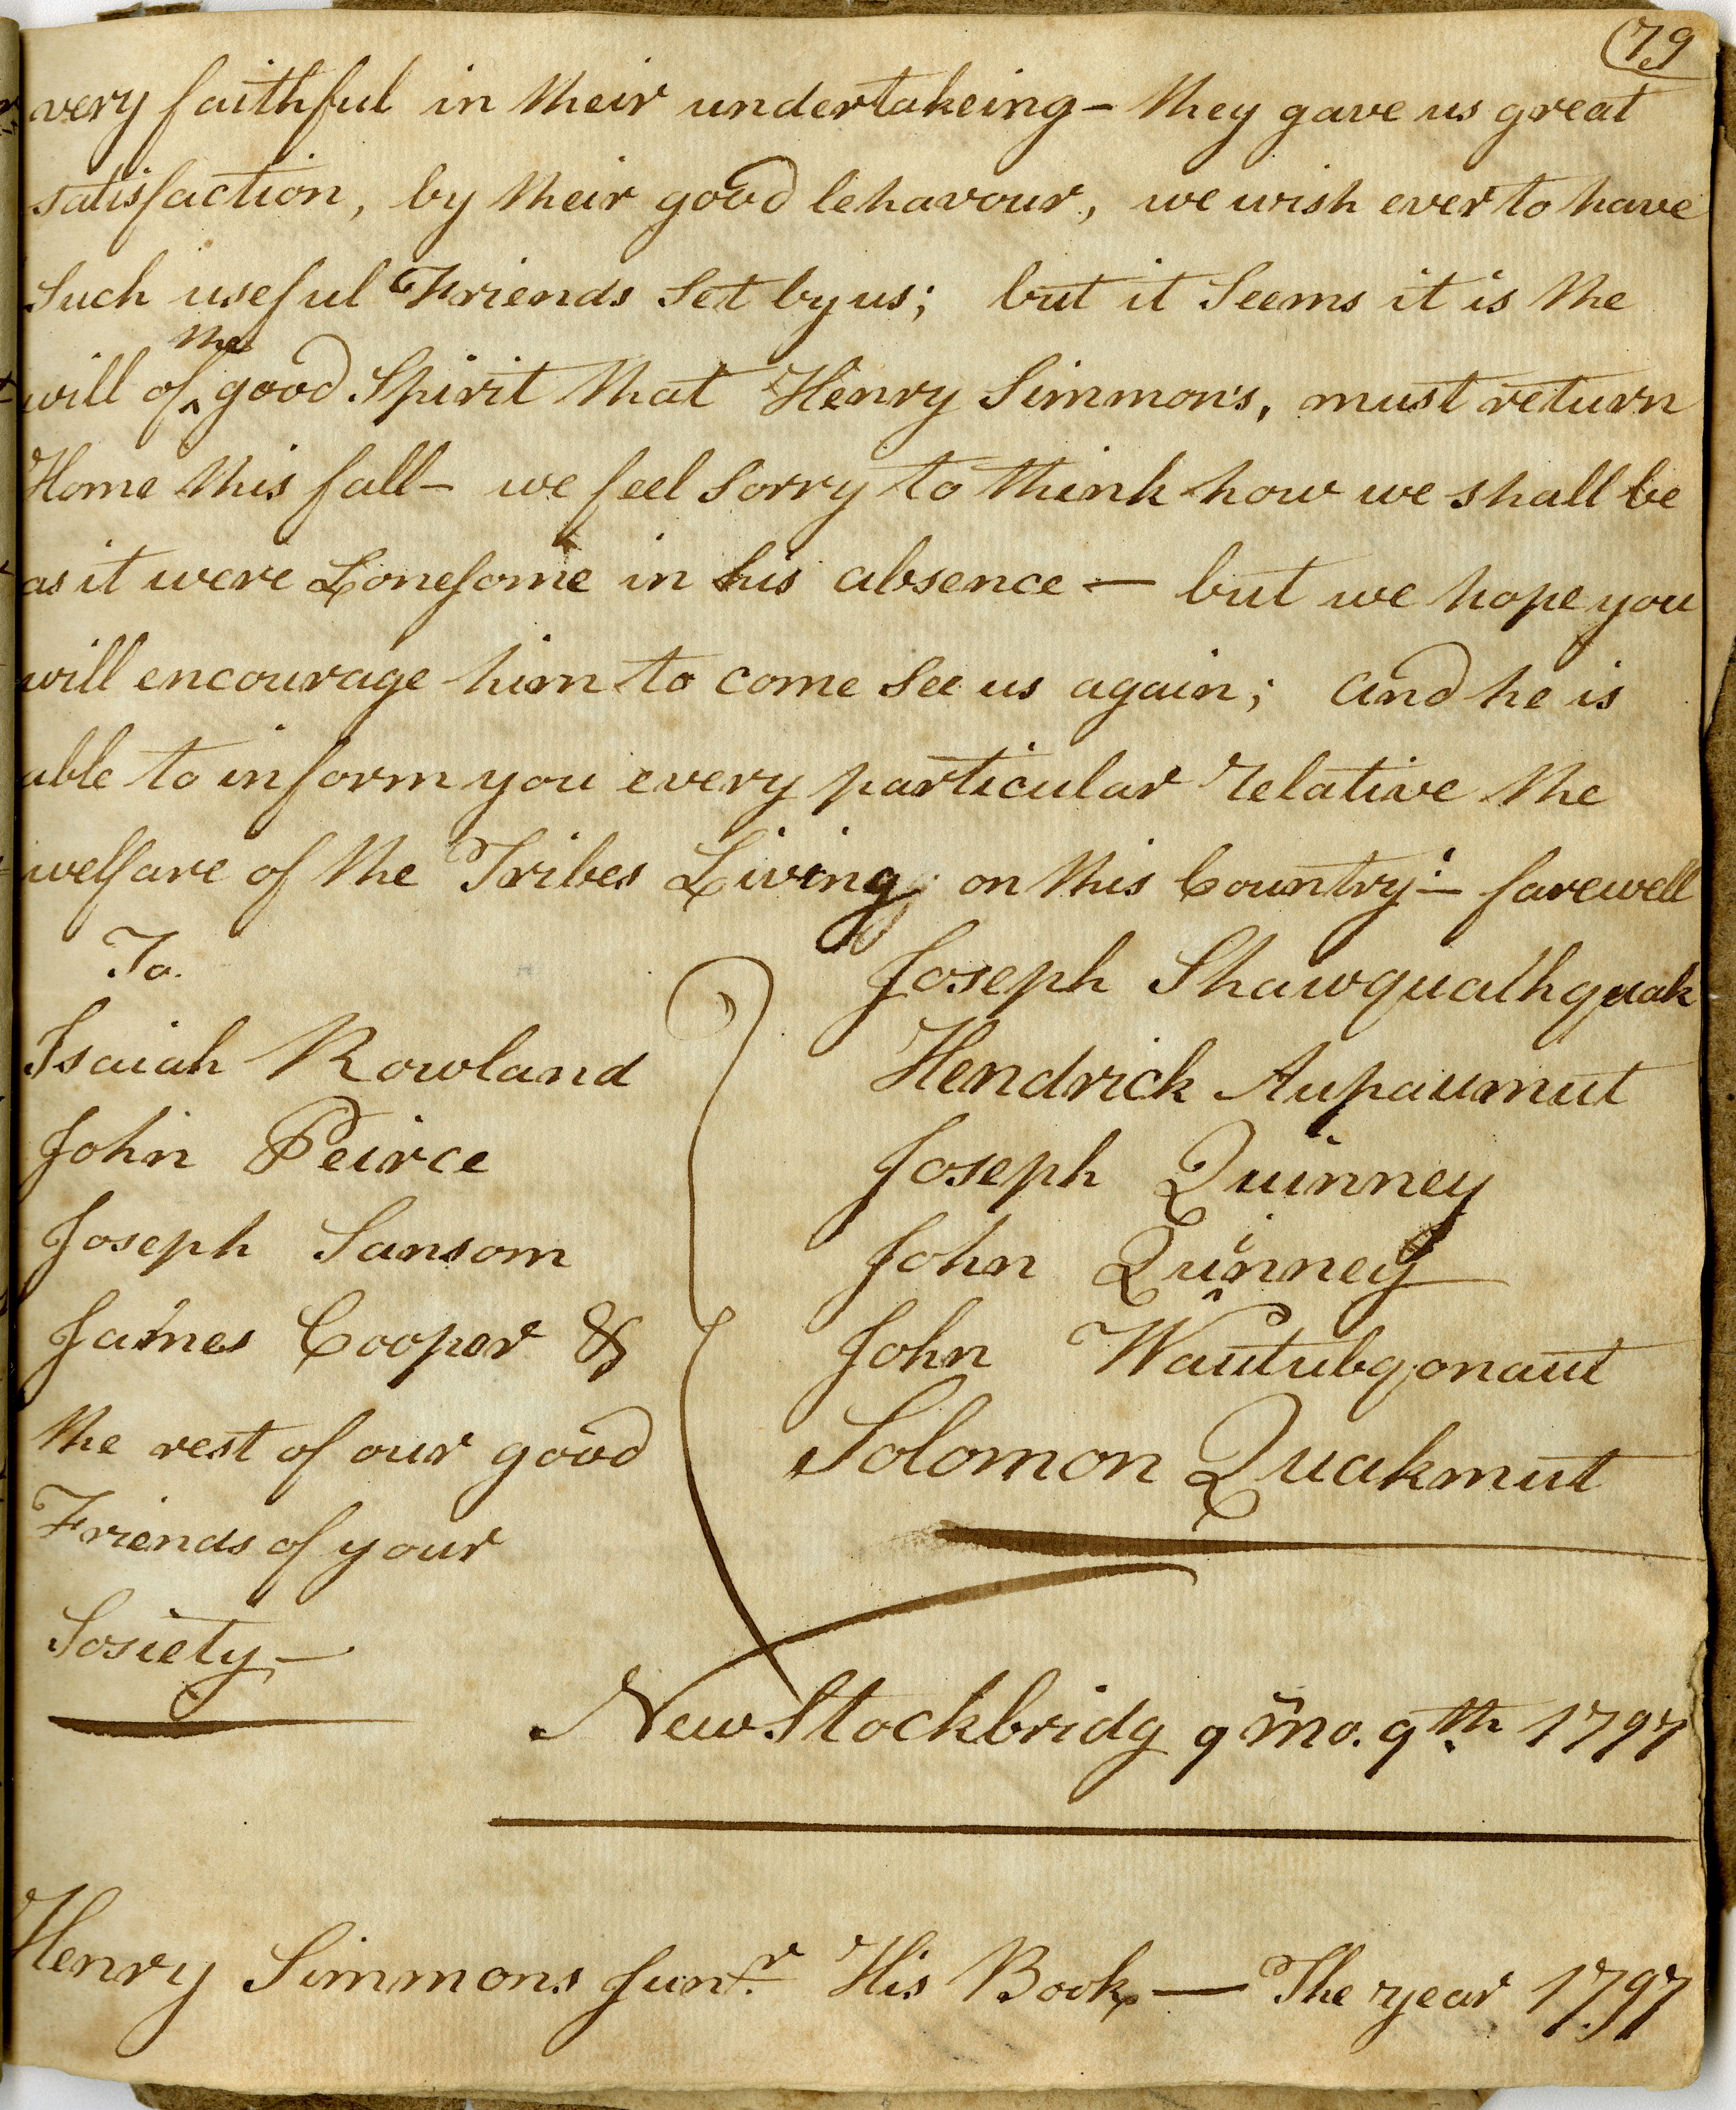 79
very faithful in their undertakeing - they gave us great
satisfaction, by their good behavour, we wish ever to have
Such useful Friends Set by us; but it Seems it is the
the
will of ^ good Spirit that Henry Simmons, must return
Home this fall - we feel Sorry to think how we shall be
as it were Lonesome in his absence — but we hope you
will encourage him to come See us again; and he is
able to inform you every particular relative the
welfare of the Tribes Living on this Country - farewell
To.
Isaiah Rowland
John Peirce
Joseph Sansom
James Cooper &
the rest of our good
Friends of your
Sosiety —
Joseph Shawquathquak
Hendrick Aupaumut
Joseph Quinney
John Quinney
John Wautubqonaut
Solomon Quakmut
New Stockbridg 9 mo. 9th 1797
Henry Simmons Junr. His Book — The year 1797